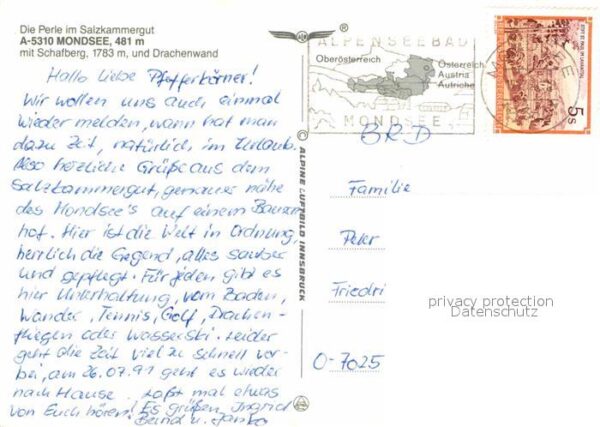 Die Perle im Salzkammergut
A-5310 MONDSEE, 481 m
mit Schafberg, 1783 m, und Drachenwand
Hallo liebe Pfefferkörner!
Wir wollen uns auch einmal
wieder melden, wann hat man
dazu Zeit, natürlich im Urlaub.
Also herzliche Grüße aus dem
Salzkammergut, genauer nähe
des Mondsee's auf einem Bauern
hof. Hier ist die Welt in Ordnung,
herrlich die Gegend, alles sauber
und gepflegt. Für jeden gibt es
hier Unterhaltung, vom Baden,
Wandern, Tennis, Golf, Drachen-
fliegen oder Wasserski. Leider
geht die Zeit viel zu schnell vor-
bei, am 26.07.91 geht es wieder
nach Hause. Laßt mal etwas
von Euch hören! Es grüßen Ingrid
Bernd u. Janko
ALPINE LUFTBILD INNSBRUCK
ALPENSEEBAD
Oberösterreich
Österreich
Austria
Autriche
MONDSEE
5 S
BRD
Familie
Peter
Friedri
O-7025
privacy protection
Datenschutz